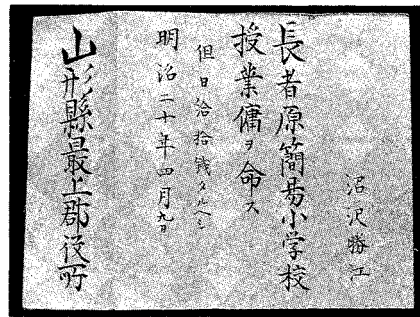 沼沢勝江
長者原簡易小学校
授業傭ヲ命ス
但日給拾銭タルヘシ
明治二十年四月九日
山形縣最上郡役所